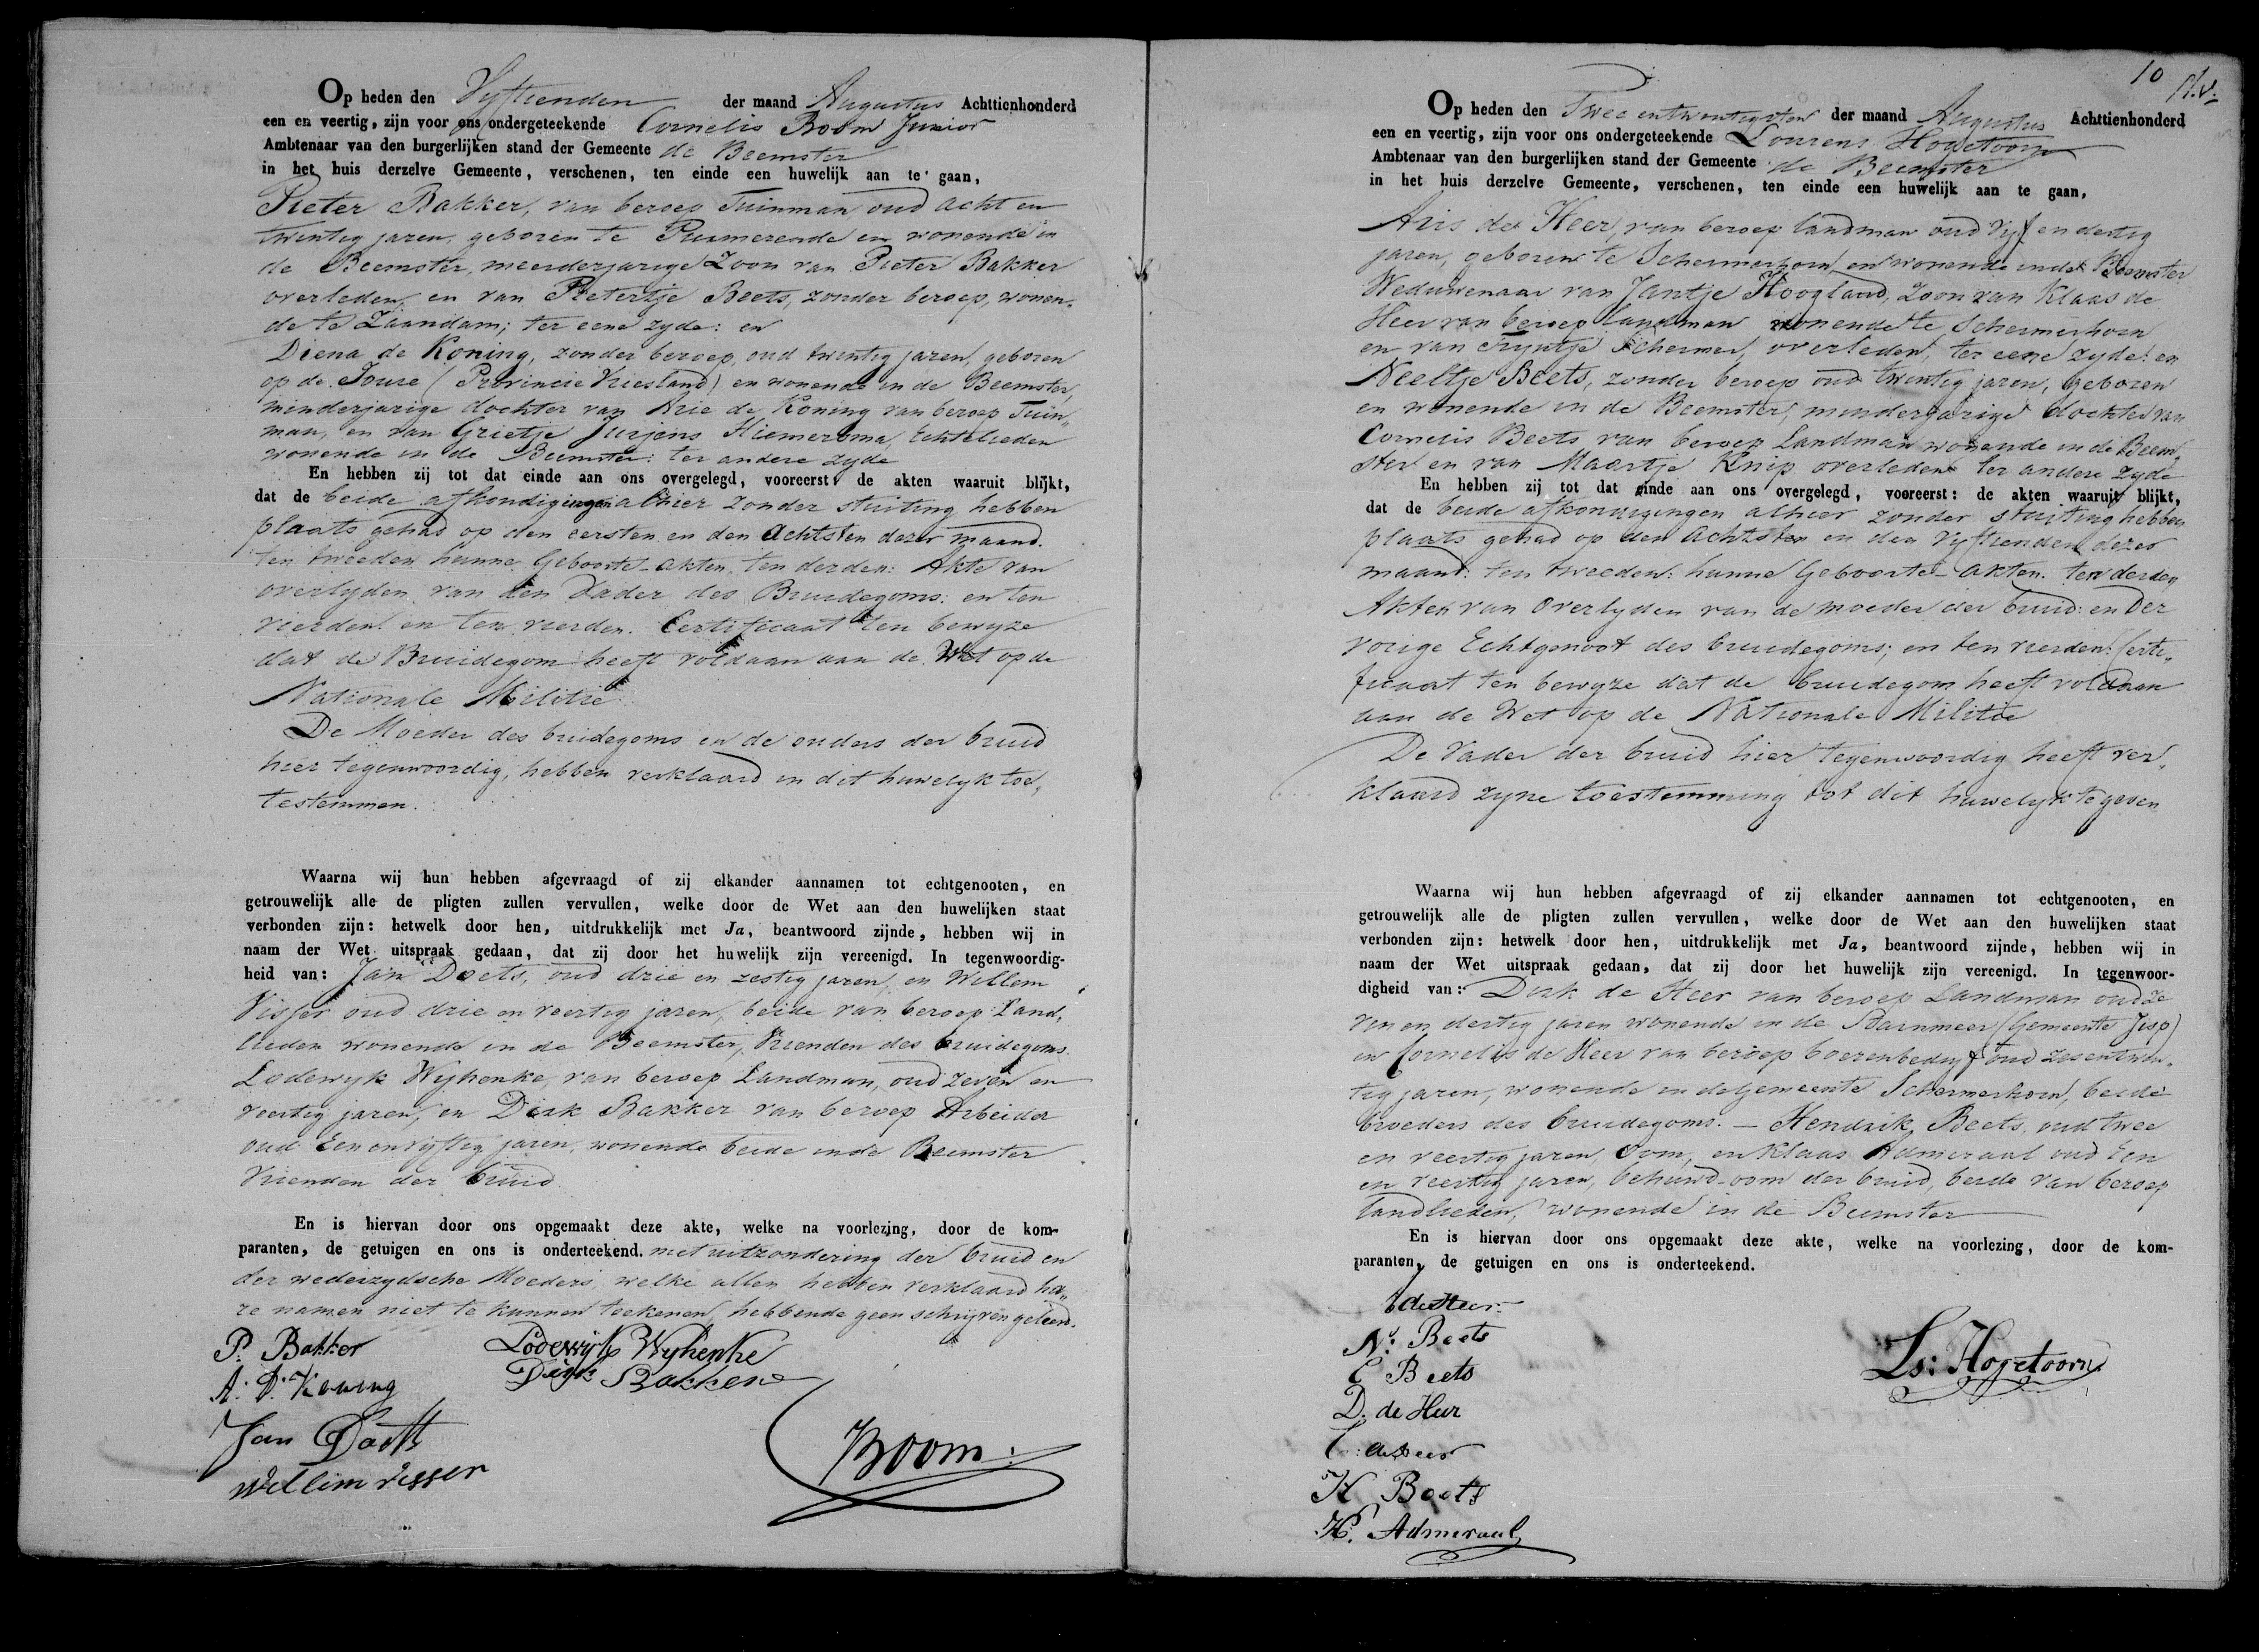 Op heden den Vyftienden der maand Augustus Achttienhonderd
een en veertig, zijn voor ons ondergeteekende Cornelis Boom Junior
Ambtenaar van den burgerlijken stand der Gemeente de Beemster
in het huis derzelve Gemeente, verschenen, ten einde een huwelijk aan te gaan,
Pieter Bakker, van beroep Tuinman oud acht en
twintig jaren, geboren te Purmerende en wonende in
de Beemster, meerderjarige Zoon van Pieter Bakker
overleden, en van Pietertje Beets, zonder beroep, wonen-
de te Zaandam; ter eene zyde: en
Diena de Koning, zonder beroep, oud twintig jaren, geboren
op de Joure (Provincie Vriesland) en wonende in de Beemster,
minderjarige dochter van Arie de Koning van beroep Tuin„
man, en van Grietje Jurjens Hiemersma, Echtelieden
wonende in de Beemster: ter andere zyde
En hebben zij tot dat einde aan ons overgelegd, vooreerst: de akten waaruit blijkt,
dat de beide afkondigingen alhier zonder stuiting hebben
plaats gehad op den eersten en den achtsten dezer maand.
ten tweeden hunne Geboorte-akten. ten derden: Akte van
overlyden van den Vader des Bruidegoms: en ten
vierden: en ten vierden. Certificaat ten bewyze
dat de Bruidegom heeft voldaan aan de Wet op de
Nationale Militie.
De Moeder des bruidegoms en de ouders der bruid
hier tegenwoordig, hebben verklaard in dit huwelyk toe„
testemmen.
Waarna wij hun hebben afgevraagd of zij elkander aannamen tot echtgenooten, en
getrouwelijk alle de pligten zullen vervullen, welke door de Wet aan den huwelijken staat
verbonden zijn: hetwelk door hen, uitdrukkelijk met Ja, beantwoord zijnde, hebben wij in
naam der Wet uitspraak gedaan, dat zij door het huwelijk zijn vereenigd. In tegenwoordig-
heid van: Jan Doets, oud drie en zestig jaren, en Willem
Visser oud drie en veertig jaren, beide van beroep Land„
lieden wonende in de Beemster, Vrienden des bruidegoms.
Lodewyk Wyhenke, van beroep Landman, oud zeven en
veertig jaren, en Dirk Bakker van beroep Arbeider
oud Een en vyftig jaren, wonende beide in de Beemster
Vrienden der bruid
En is hiervan door ons opgemaakt deze akte, welke na voorlezing, door de kom-
paranten, de getuigen en ons is onderteekend. met uitzondering der bruid en
der wederzydsche Moeders, welke allen hebben verklaard ha„
re namen niet te kunnen teekenen, hebbende geen schryven geleerd.
P. Bakker Lodewijk Wyhenke
A: D: Koning Dirk Bakker
Jan Doets
Willem Visser
Boom.
10
Op heden den Twee entwintigsten der maand Augustus Achttienhonderd
een en veertig, zijn voor ons ondergeteekende Lourens Hogetoorn
Ambtenaar van den burgerlijken stand der Gemeente de Beemster
in het huis derzelve Gemeente, verschenen, ten einde een huwelijk aan te gaan,
Aris de Heer, van beroep landman oud Vyf en dertig
jaren, geboren te Schermerhorn en wonende in de Beemster
Weduwenaar van Jantje Hoogland, Zoon van Klaas de
Heer van beroep landman wonende te Schermerhorn
en van Tryntje Schermer, overleden, ter eene zyde: en
Neeltje Beets, zonder beroep oud twintig jaren, geboren
en wonende in de Beemster, minderjarige dochter van
Cornelis Beets van beroep Landman wonende in de Beem„
ster en van Maartje Knip overleden ter andere zyde
En hebben zij tot dat einde aan ons overgelegd, vooreerst: de akten waaruit blijkt,
dat de beide afkondigingen alhier zonder stuiting hebben
plaats gehad op den achtsten en den Vyftienden dezer
maand: ten tweeden: hunne Geboorte-akten. ten derden
Akten van Overlyden van de moeder der bruid: en der
vorige Echtgenoot des bruidegoms; en ten vierden: Certi„
ficaat ten bewyze dat de bruidegom heeft voldaan
aan de Wet op de Nationale Militie
De Vader der bruid hier tegenwoordig heeft ver„
klaard zyne toestemming tot dit huwelyk te geven
Waarna wij hun hebben afgevraagd of zij elkander aannamen tot echtgenooten, en
getrouwelijk alle de pligten zullen vervullen, welke door de Wet aan den huwelijken staat
verbonden zijn: hetwelk door hen, uitdrukkelijk met Ja, beantwoord zijnde, hebben wij in
naam der Wet uitspraak gedaan, dat zij door het huwelijk zijn vereenigd. In tegenwoor-
digheid van: Dirk de Heer van beroep Landman oud ze
ven en dertig jaren wonende in de Starnmeer (Gemeente Jisp)
en Cornelis de Heer van beroep boerenbedryf oud zesentwin„
tig jaren, wonende in de Gemeente Schermerhorn, beide
broeders des bruidegoms. — Hendrik Beets, oud twee
en veertig jaren, Oom, en Klaas Admeraal oud Een
en veertig jaren, behuwd-oom der bruid, beide van beroep
landlieden, wonende in de Beemster
En is hiervan door ons opgemaakt deze akte, welke na voorlezing, door de kom-
paranten, de getuigen en ons is onderteekend.
de Heer
N: Beets
C Beets
D. de Heer
C: de Heer
H Beets
K. Admeraal
Ls: Hogetoorn